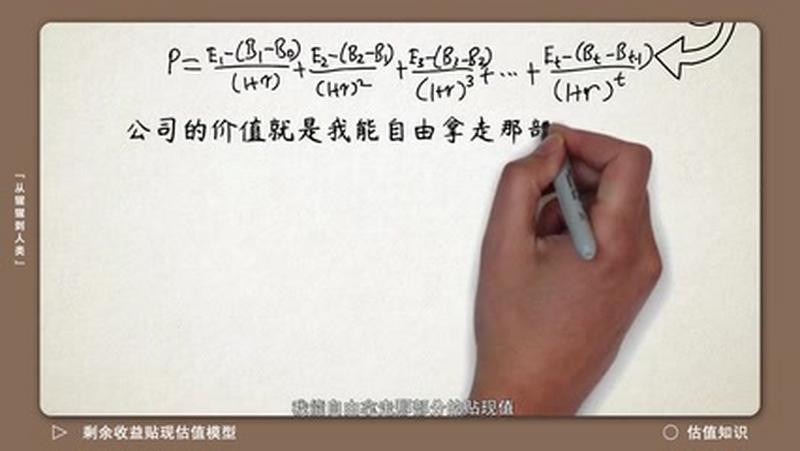 P=E₁-(B₁-B₀)/(1+r)+E₂-(B₂-B₁)/(1+r)²+E₃-(B₃-B₂)/(1+r)³+…+Eₜ-(Bₜ-Bₜ₋₁)/(1+r)ᵗ
公司的价值就是我能自由拿走那部
「从猩猩到人类」
我能自由拿走那部分的贴现值
剩余收益贴现估值模型
估值知识